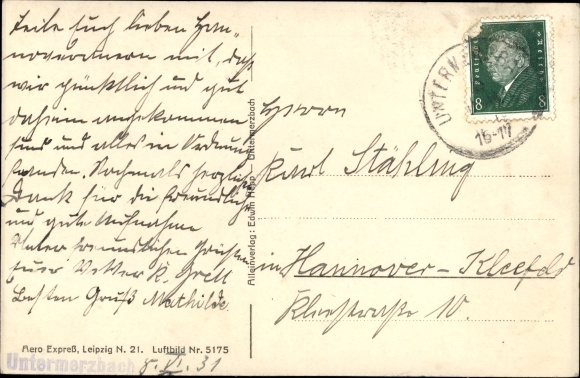 Teile Euch lieben Han-
noveranern mit, daß
wir pünktlich und gut
daheim angekommen
sind und alles in Ordnung
fanden. Nochmals herzlich
Dank für die freundliche
und gute Aufnahme
Unter freundlichen Grüßen
Euer Vetter K.
Besten Gruß Mathilde.
Aero Expreß, Leipzig N. 21. Luftbild Nr. 5175
Untermerzbach
8. VI. 31
Alleinverlag: Edwin Untermerzbach
UNTERM
16-17
Deutsches Reich
8 8
Herrn
Karl Stähling
in Hannover-Kleefeld
Kleestraße 10.